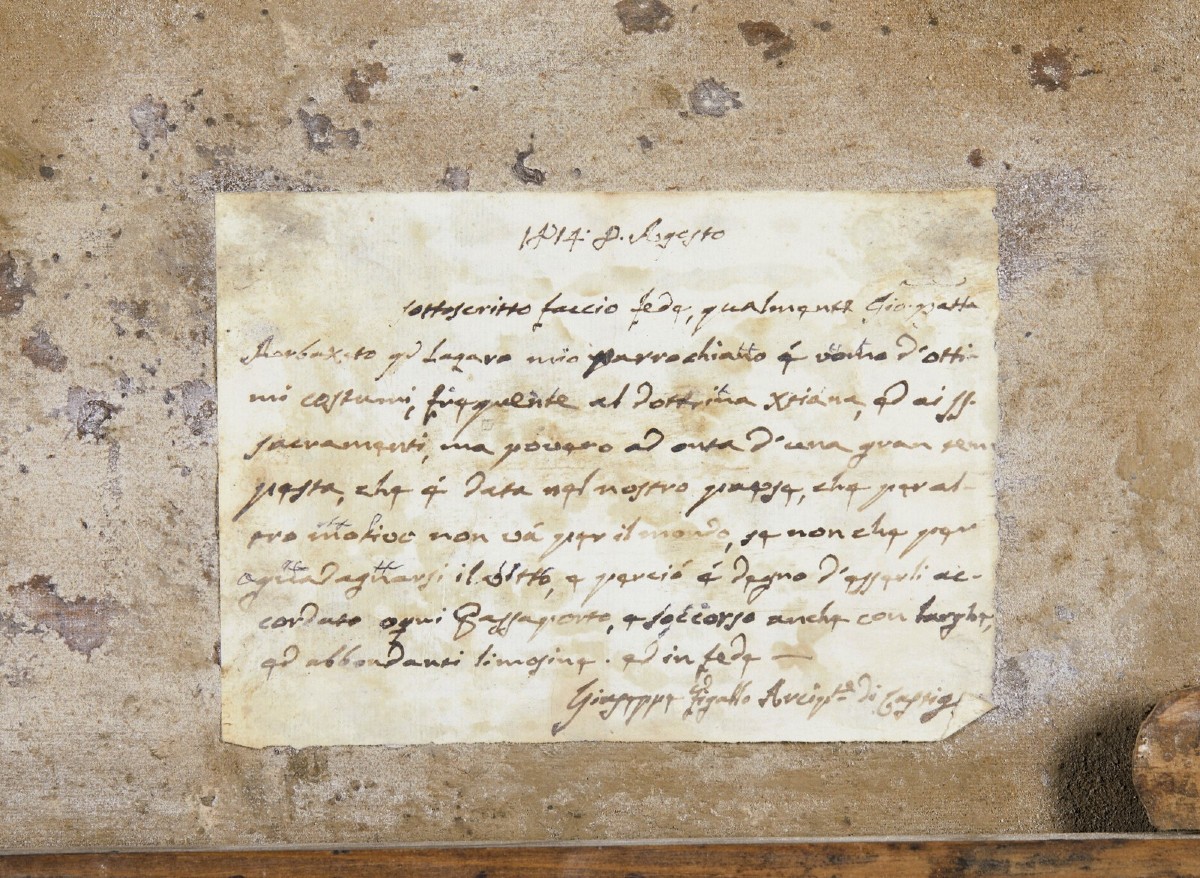 1814. 8. Agosto
sottoscritto faccio fede, qualmente Gio: Batta
qd Lazaro mio parrochiano é uomo d'otti-
mi costumi, frequente al dottrina Xtiana, ed ai ss.
sacramenti, ma povero ad onta d'una gran tem
pesta, che é data nel nostro paese, che per al-
tro motivo non vá per il mondo, se non che per
aguadagnarsi il vitto, e perció é degno d'esserli ac-
cordato ogni Passaporto, e soccorso anche con larghe,
ed abbondanti limosine. ed in fede —
Giuseppe Arcipte di